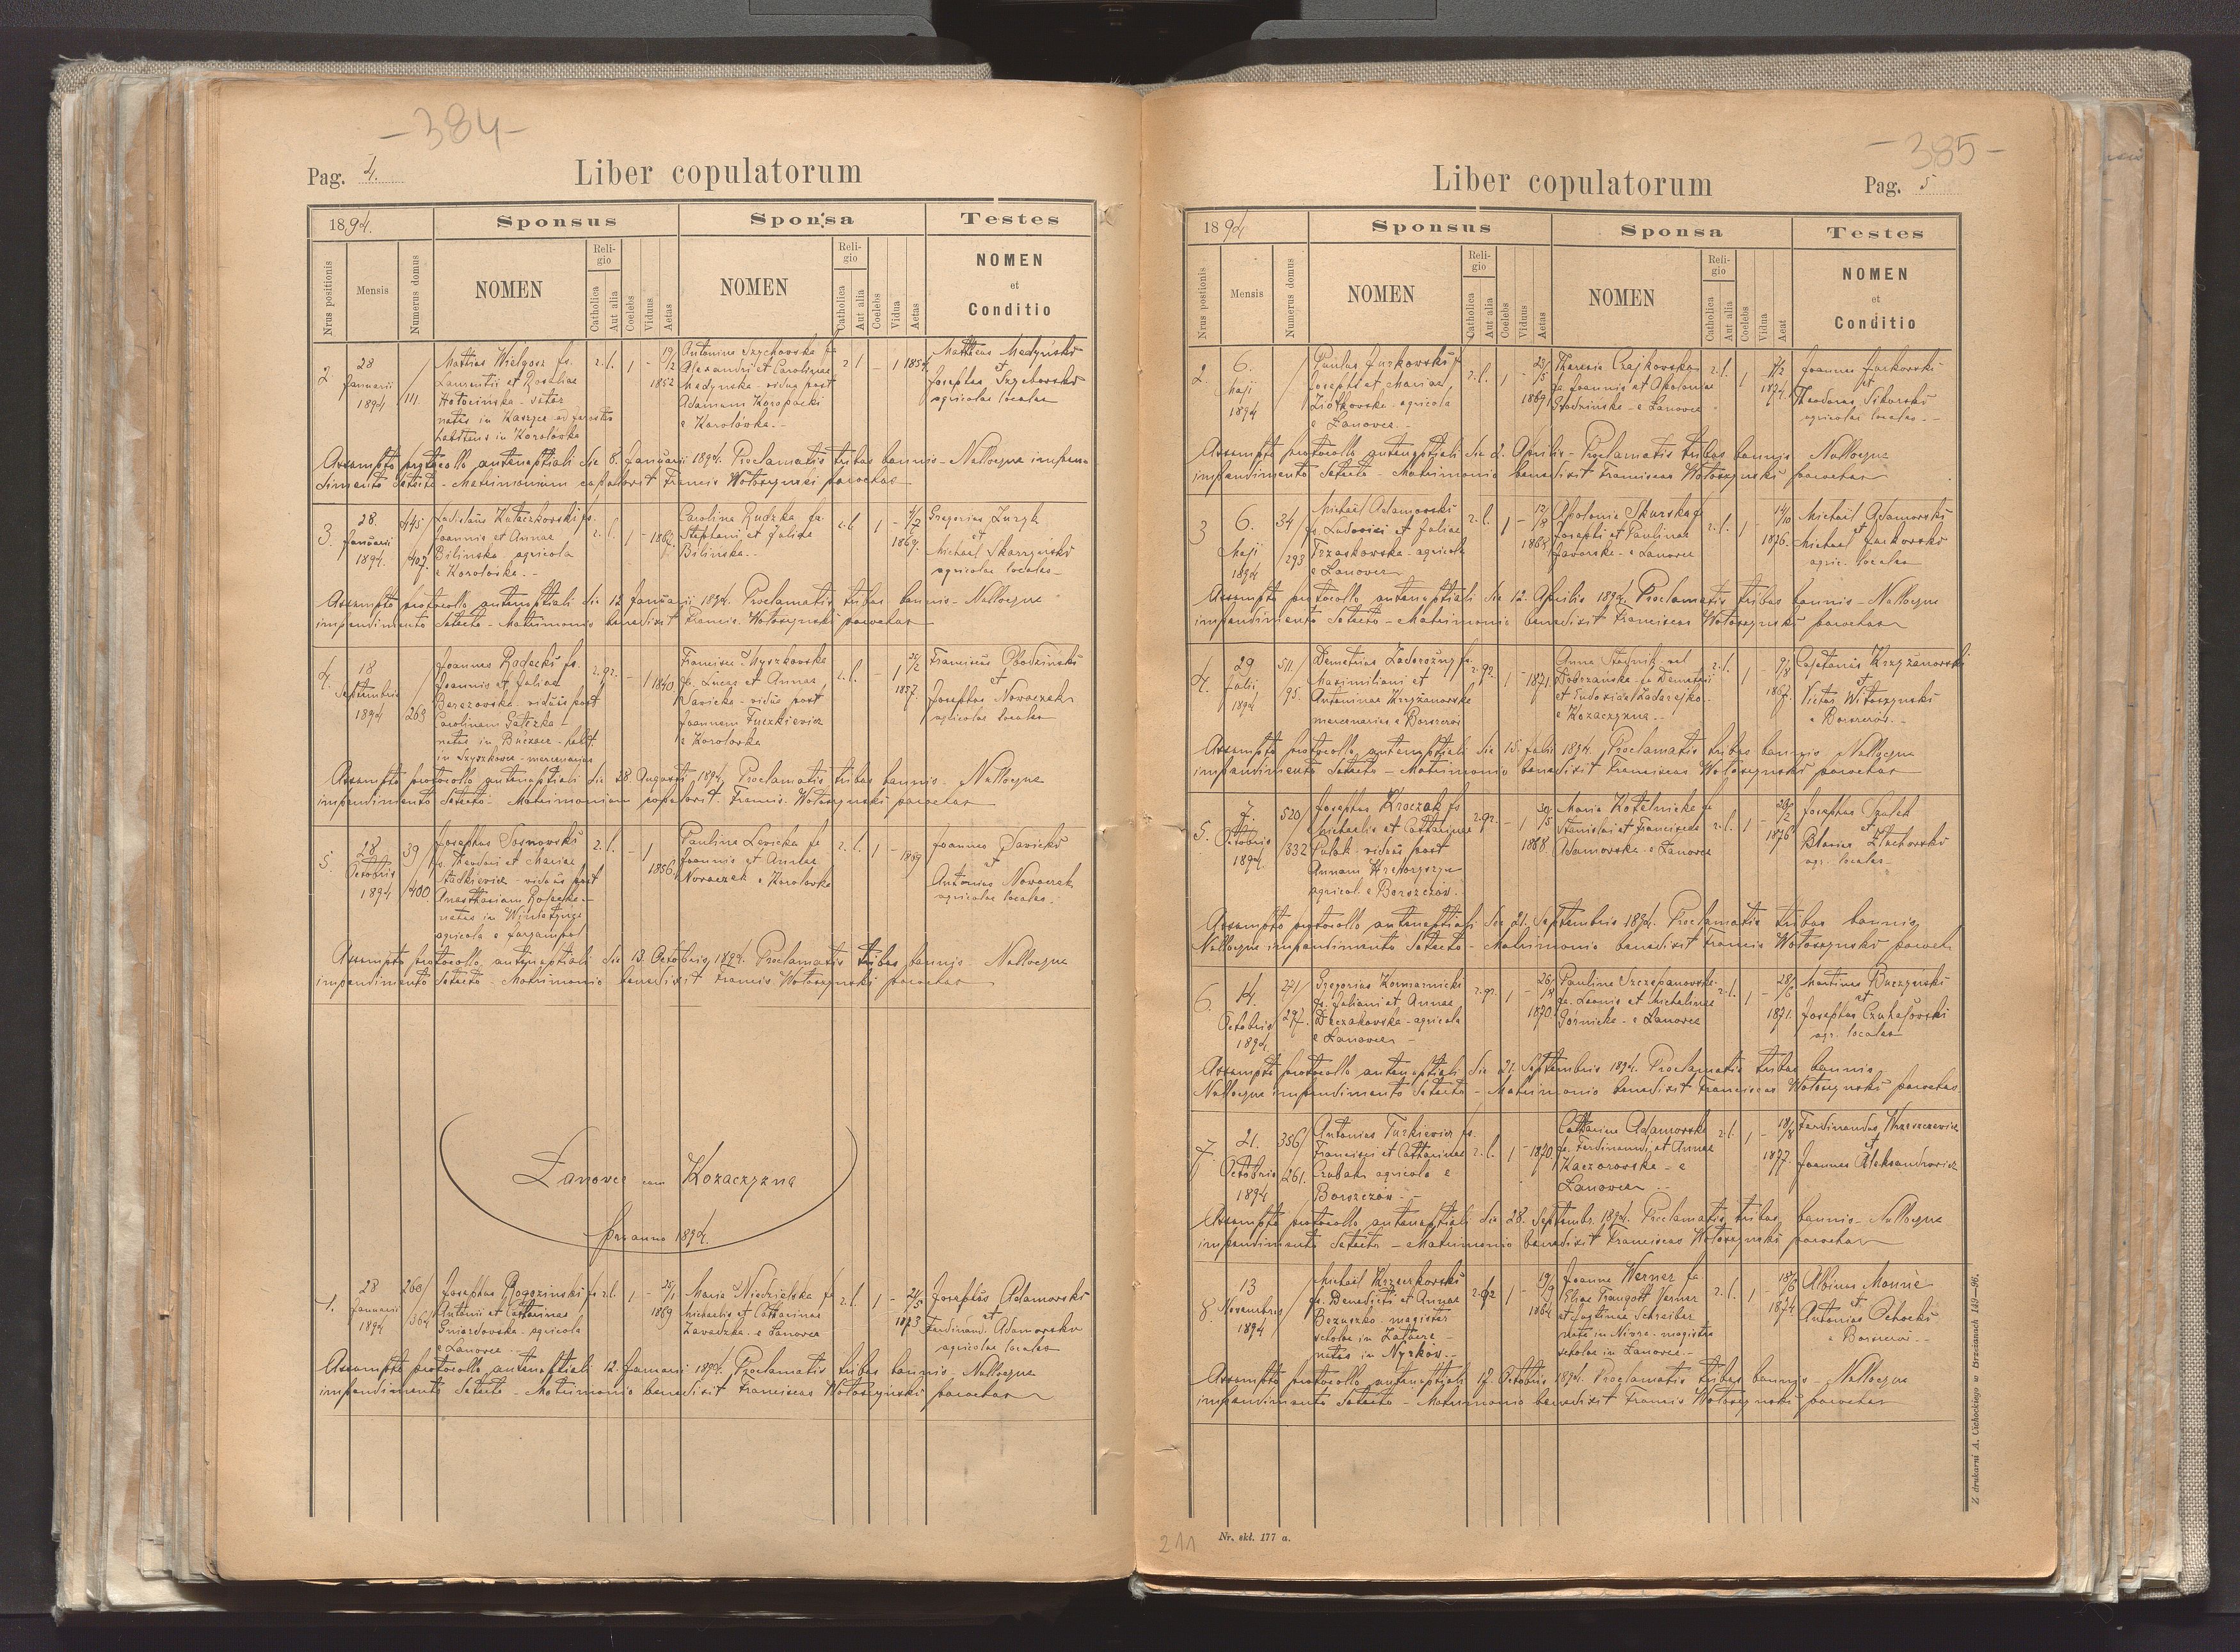 - 384 -
Pag. 4.
Liber copulatorum
1894.
Sponsus
Sponsa
Testes
Nrus positionis
Mensis
Numerus domus
NOMEN
Religio
Catholica
Aut alia
Coelebs
Viduus
Aetas
NOMEN
Religio
Catholica
Aut alia
Coelebs
Vidua
Aetas
NOMEN
et
Conditio
2.
28
Januarii
1894
111.
Mathias Wielgosz fs.
Laurentii et Rosaliae
natus in
habitans in Korolówka
r. l.
1
-
19/2
1852
Antonina Szychowska fa
Alexandri et Carolinae
Medynska - vidua post
Adamum Koropacki
e Korolówka. -
r. l.
-
1
1854.
Mattheus Medyński
et
Josephus Szychowski
agricolae locales
Assumpto protocollo antenuptiali die 8. Januarii 1894. Proclamatis tribus bannis - Nulloque impe-
dimento detecto - Matrimonium copulavit Francis Wołoszynski parochus
3.
28.
Januarii
1894.
445
407.
Ladislaus Kułaczkowski fs.
Joannis et Annae
Bilinska agricola
e Korolówka. -
r. l.
1
-
1862
Carolina Rudzka fa.
Stephani et Juliae
Bilinska. -
r. l.
1
-
1869.
Gregorius Zurgh
et
Michael Skarzyński
agricolae locales -
Assumpto protocollo antenuptiali die 12 Januarii 1894. Proclamatis tribus bannis - Nulloque
impendimento detecto - Matrimonio benedixit Francis. Wołoszynski parochus
4.
18
Septembris
1894
263
Joannes Radecki fs.
Joannis et Juliae
Berezowska - viduus post
Carolinam Gałezka -
natus in Buczacz - habit.
in Szyszkowce - mercenarius
r. gr.
-
1
1840
Francisca Myszkowska
fa. Lucas et Annae
Sawicka - vidua post
Joannem Fuczkiewicz
e Korolowka
r. l.
-
1
1857.
Franciscus Obodziński
et
Josephus Nowaczek
agricolae locales
Assumpto protocollo antenuptiali die 28 Augusti 1894. Proclamatis tribus bannis - Nulloque
impendimento detecto. Matrimonium copulavit. Francis. Wołoszynski parochus
5.
28
Octobris
1894
39
400.
Josephus Sosnowski
fs. Theodori et Mariae
Stadkiewicz - viduus post
Anasthasiam Radecka -
natus in
agricola e
r. l.
-
1
1856
Paulina Levicka fa
Joannis et Annae
Nowaczek e Korolowka
r. l.
1
-
1869
Joannes Savicki
et
Antonius Nowaczek
agricolae locales.
Assumpto protocollo antenuptiali die 13. Octobris 1894. Proclamatis tribus bannis - Nulloque
impendimento detecto - Matrimonio benedixit Francis Wołoszynski parochus
Lanovce cum Kozaczyzna
pro anno 1894.
1.
28
Januarii
1894
260
364
Josephus Rogozinski fs
Antonii et Catharinae
Gniazdowska - agricola
e Lanovce -
r. l.
1
-
25/1
1869
Maria Niedzielska fa
Michaelis et Catharinae
Zawadzka - e Lanovce
r. l.
1
-
21/5
1873
Josephus Adamowski
et
Ferdinand. Adamowski
agricolae locales
Assumpto protocollo antenuptiali 12. Januarii 1894. Proclamatis tribus bannis - Nulloque
impendimento detecto - Matrimonio benedixit Franciscus Wołoszynski parochus
- 385 -
Liber copulatorum
Pag. 5
1894
Sponsus
Sponsa
Testes
Nrus positionis
Mensis
Numerus domus
NOMEN
Religio
Catholica
Aut alia
Coelebs
Viduus
Aetas
NOMEN
Religio
Catholica
Aut alia
Coelebs
Vidua
Aeat
NOMEN
et
Conditio
2.
6.
Maji
1894
Paulus Jurkowski fs
Josephi et Mariae
Ziółkowska - agricola
e Lanovce. -
r. l.
1
-
1869
Theresia Czajkowska
fa. Joannis et Apoloniae
Grodzińska - e Lanovce
r. l.
1
1874.
Joannes Jurkowski
et
Theodorus Sikorski
agricolae locales -
Assumpto protocollo antenuptiali die 2. Aprilis - Proclamatis tribus bannis Nulloque
impendimento detecto - Matrimonio benedixit Franciscus Wołoszynski parochus
3
6.
Maji
1894
34
293
Michael Adamowski
fs. Ludovici et Juliae
Trzaskowska - agricola
e Lanovce
r. l.
1
-
12/8
1868
Apolonia Skurska fa
Josephi et Paulinae
Jaworska - e Lanovce
r. l.
1
-
14/10
1876.
Michael Adamowski
et
Michael Jurkowski
agric. locales
Assumpto protocollo antenuptiali die 12. Aprilis 1894. Proclamatis tribus bannis - Nulloque
impendimento detecto - Matrimonio benedixit Franciscus Wołoszynski parochus
4.
29
Julii
1894
511
95.
Demetrius Zadorożny fs.
Maximiliani et
Antoninae Krzyżanowska
mercenarius e Borszczów
r. gr.
1
-
1871.
Anna Stadnik vel
Dobrzańska fa Demetrii
et Eudoxiae Zadarejko -
e Kozaczyzna -
r. l.
1
-
9/8
1867.
Cajetanus Krzyżanowski
et
Victor Witoszynski
e Borszczów. -
Assumpto protocollo antenuptiali die 15. Julii 1894. Proclamatis tribus bannis Nulloque
impendimento detecto - Matrimonio benedixit Franciscus Wołoszynski parochus
5.
7.
Octobris
1894.
520
332
Josephus Kroczak fs
Michaelis et Catharinae
Pulak - viduus post
Annam Hrehorszyn
agricol. e Borszczów.
r. gr.
-
1
30/5
1868.
Maria Kotelnicka fa
Stanislai et Franciscae
Adamowska - e Lanovce
r. l.
1
-
1876
Josephus Szulek
et
Blasius Stachorski
agr. locales -
Assumpto protocollo antenuptiali die 21. Septembris 1894. Proclamatis tribus bannis
Nulloque impendimento detecto - Matrimonio benedixit Francis Wołoszynski paroch
6.
14.
Octobris
1894.
271
297.
Gregorius Komarnicki
fs. Juliani et Annae
Drczakowska - agricola
e Lanovce -
r. gr.
1
-
1870
Paulina Szczepanowska
fa. Leonis et Michalinae
Górnicka - e Lanovce
r. l.
1
-
28/6
1871.
Martinus Buczyński
et
Josephus
agr. locales
Assumpto protocollo antenuptiali die 21. Septembris 1894. Proclamatis tribus bannis
Nulloque impendimento detecto - Matrimonio benedixit Franciscus Wołoszynski parochus
7.
21.
Octobris
1894
356
261.
Antonius Turkiewicz fs.
Francisci et Catharinae
Czubata agricola e
Borszczów. -
r. l.
1
-
1870
Catharina Adamowska
fa. Ferdinandi et Annae
Kaczorowska - e
Lanovce -
r. l.
1
-
18/8
1877.
Ferdinandus
et
Joannes Aleksandrowicz
Assumpto protocollo antenuptiali die 28. Septembr. 1894. Proclamatis tribus bannis - Nulloque
impendimento detecto - Matrimonio benedixit Franciscus Wołoszynski parochus
8.
13
Novembris
1894
Michael Krzeczkowski
fs. Benedicti et Annae
Bezuszko magister
scholae in
natus in Nyrków. -
r. gr.
1
-
19/9
1864
Joanna Werner fa
Eliae Traugott Verner
et Justinae Schreiber
nata in Nivra - magistra
scholae in Lanovce. -
r. l.
1
-
18/6
1874
Albinus Mounie
et
Antonius Ochocki
e Borszczów. -
Assumpto protocollo antenuptiali 17. Octobris 1894. Proclamatis tribus bannis - Nulloque
impendimento detecto - Matrimonio benedixit Francis Wołoszynski parochus
Z drukarni A. Cichockiego w Brzeżanach 149—96.
Nr. skł. 177 a.
211